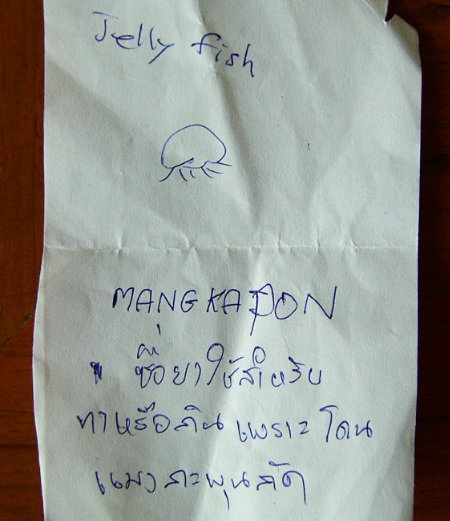 Jelly fish
MANGKAPON
ซื้อยาใช้สำหรับ
ทาหรือกิน เพราะ โดน
แมงกะพุนกัด